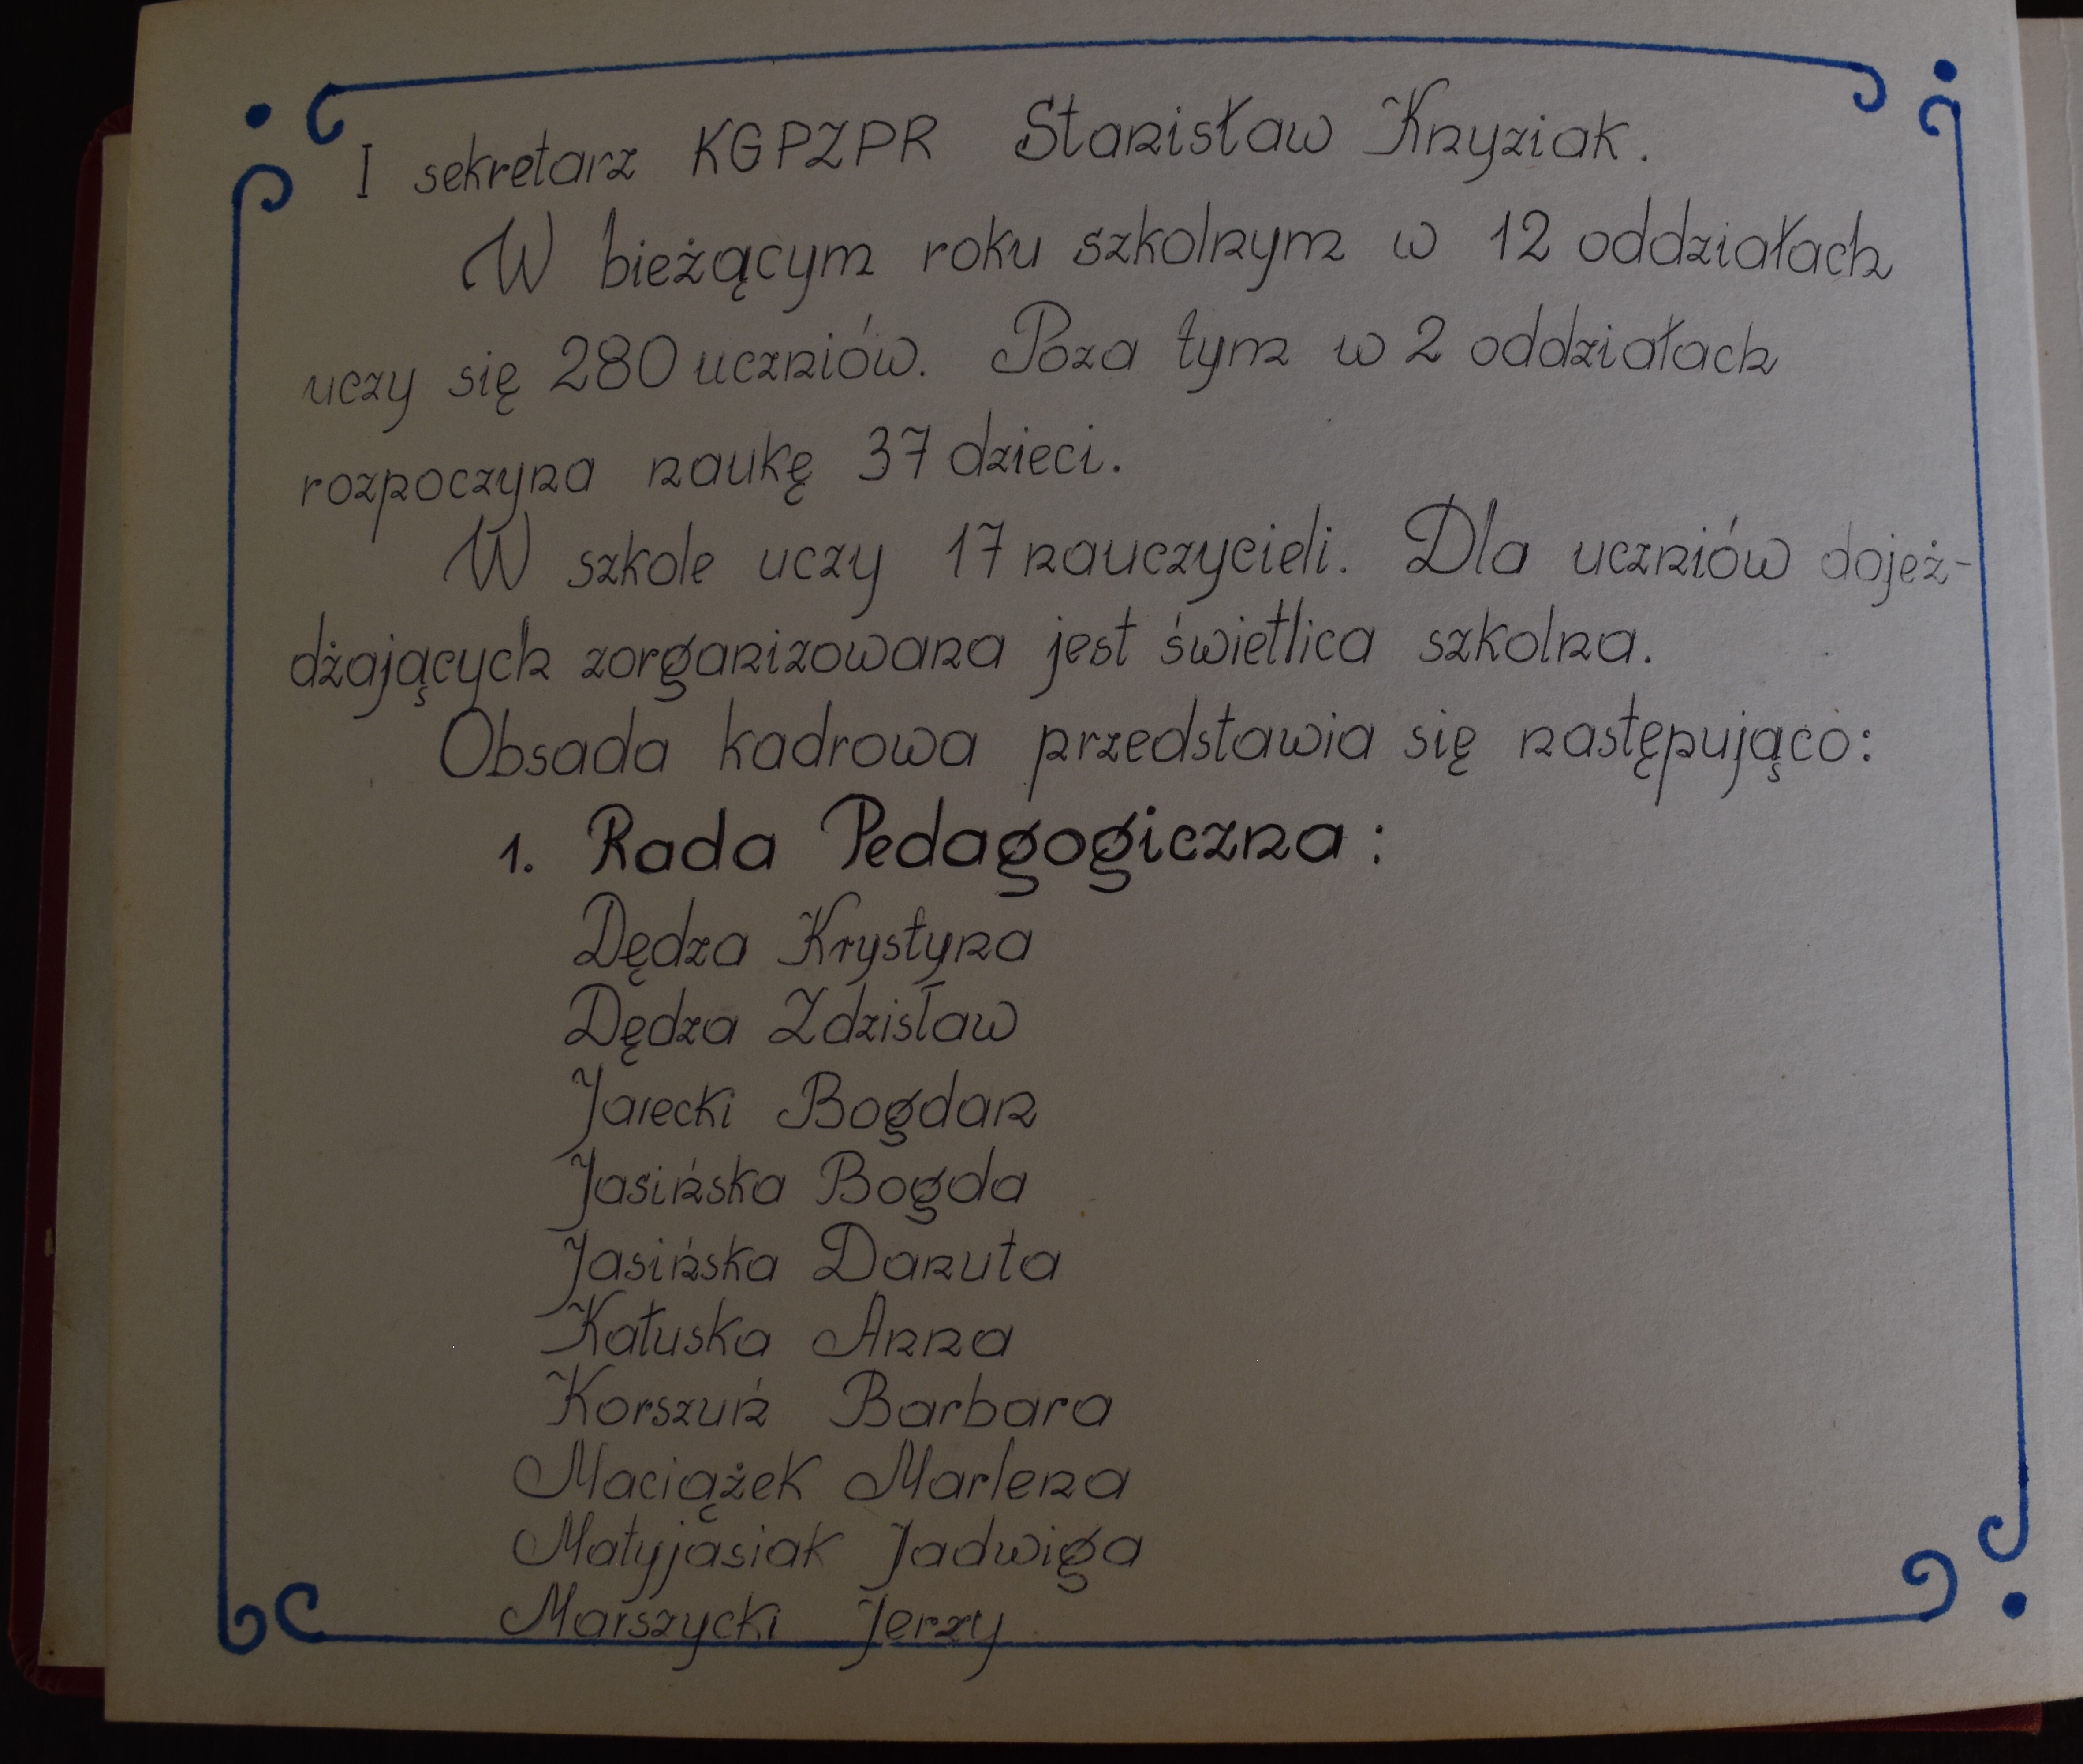 I sekretarz KGPZPR Stanisław Knyziak.
W bieżącym roku szkolnym w 12 oddziałach
uczy się 280 uczniów. Poza tym w 2 oddziałach
rozpoczyna naukę 37 dzieci.
W szkole uczy 17 nauczycieli. Dla uczniów dojeż-
dżających zorganizowana jest świetlica szkolna.
Obsada kadrowa przedstawia się następująco:
1. Rada Pedagogiczna:
Dędza Krystyna
Dędza Zdzisław
Jarecki Bogdan
Jasińska Bogda
Jasińska Danuta
Kałuska Anna
Korszuń Barbara
Maciążek Marlena
Matyjasiak Jadwiga
Marszycki Jerzy